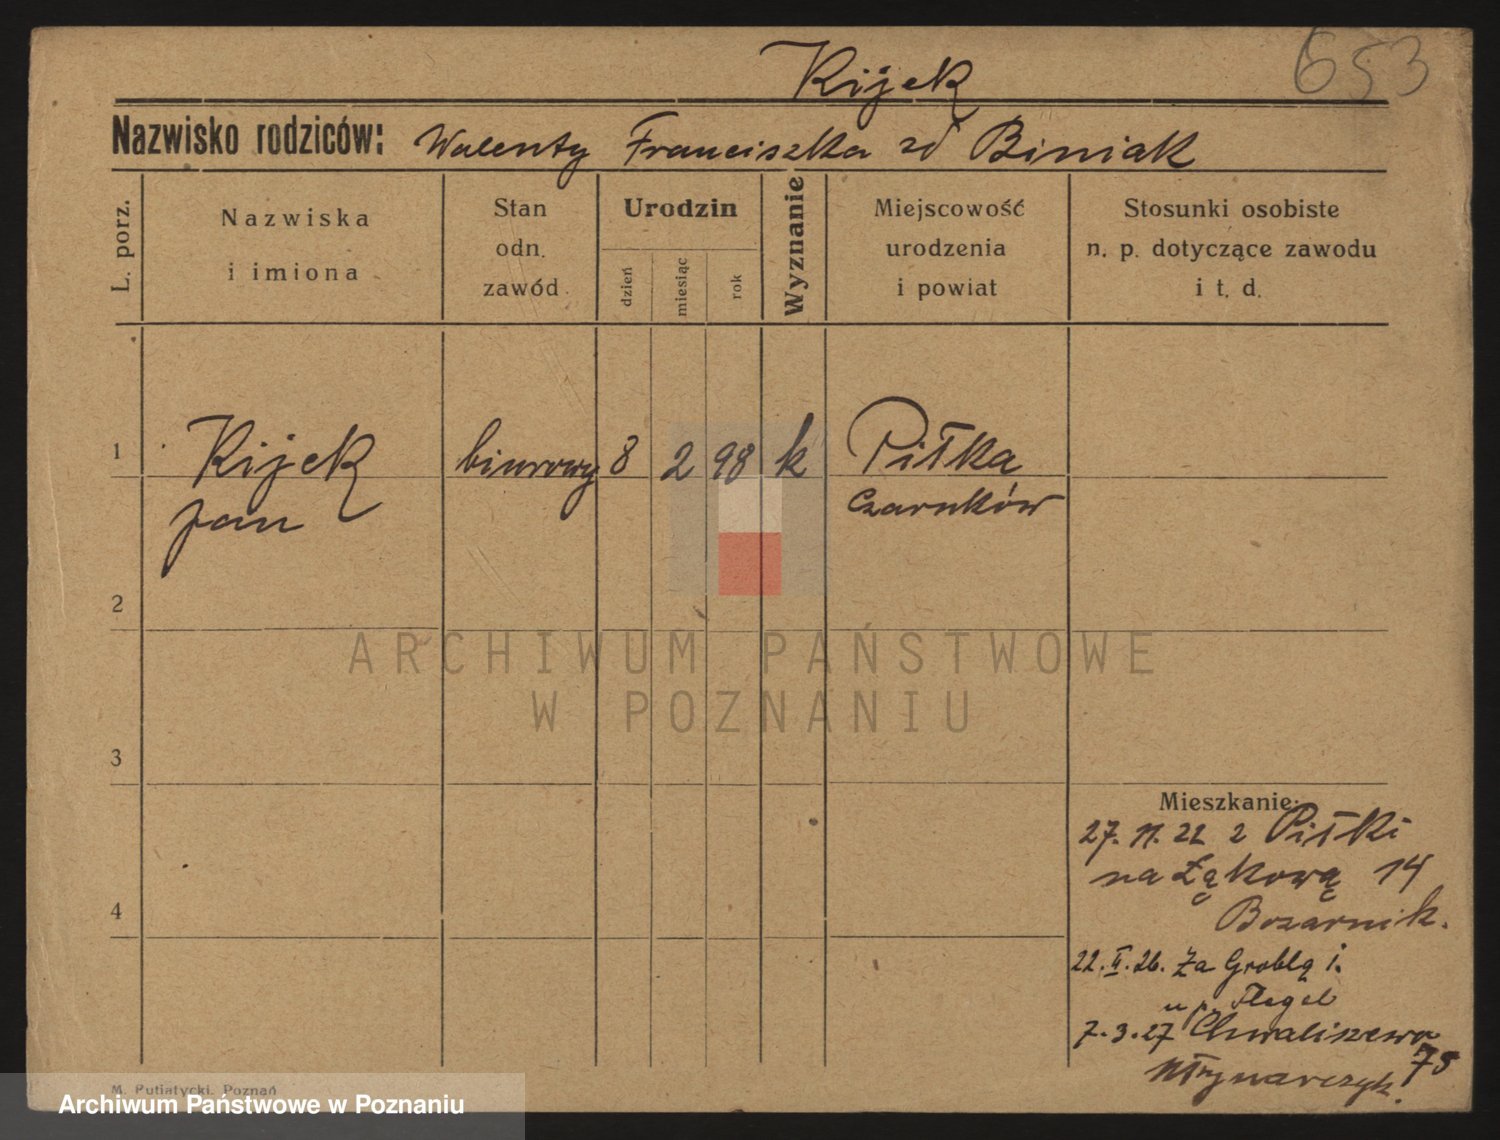 653
Kijek
Nazwisko rodziców: Walenty Franciszka zd Biniak
L. porz.
Nazwiska
i imiona
Stan
odn.
zawód
Urodzin
dzień
miesiąc
rok
Wyznanie
Miejscowość
urodzenia
i powiat
Stosunki osobiste
n. p. dotyczące zawodu
i t. d.
1 Kijek biurowy 8 2 98 k Piłka
Jan Czarnków
2
3
4
ARCHIWUM PAŃSTWOWE
W POZNANIU
Mieszkanie:
27. 11. 22 z Piłki
na Łąkową 14
22. II. 26. Za Groblą 1.
u p. Flegel
7. 3. 27 Chwaliszewo
75
Młynarczyk.
M. Putiatycki, Poznań
Archiwum Państwowe w Poznaniu